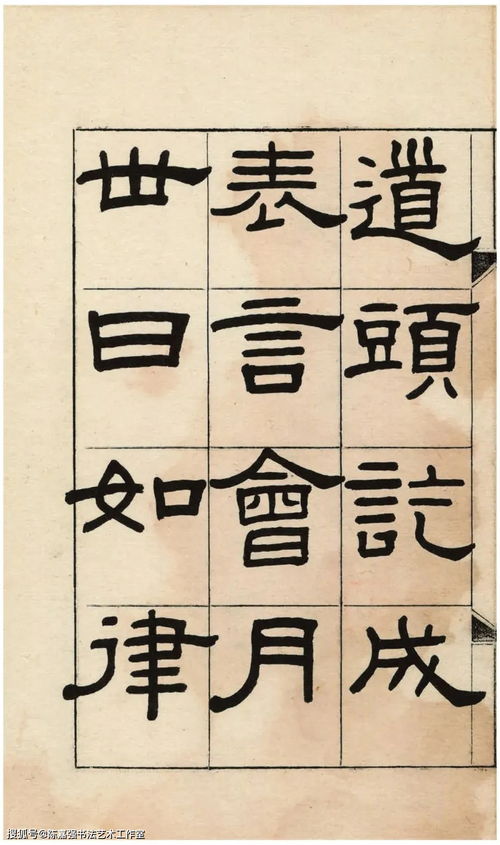 道頭訖成
表言會月
丗日如律
搜狐号@陈嘉强书法艺术工作室